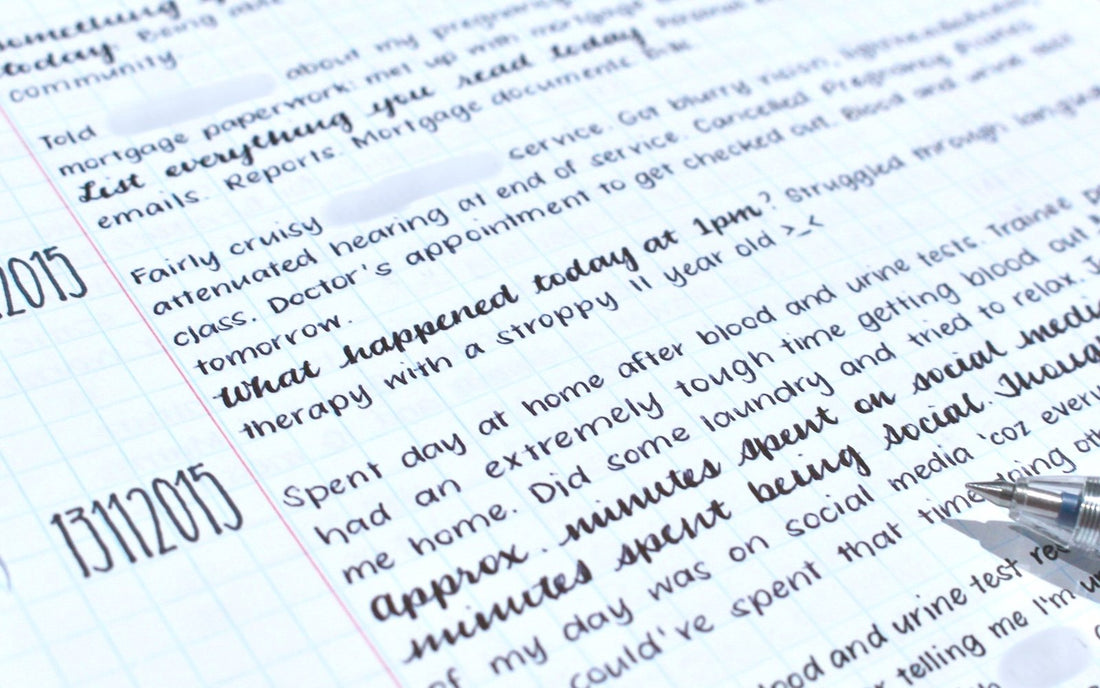 something y
today. Being
community
Told about my pregnancy
mortgage paperwork: met up with mortgage
List everything you read today Personal
emails. Reports. Mortgage documents
Fairly cruisy service. Got blurry vision, lightheadedness,
attenuated hearing at end of service. Cancelled Pregnancy Pilates
class. Doctor's appointment to get checked out. Blood and urine test
tomorrow.
2015
What happened today at 1pm? Struggled through language
therapy with a stroppy 11 year old >_<
13112015
Spent day at home after blood and urine tests. Trainee
had an extremely tough time getting blood out
me home. Did some laundry and tried to relax.
approx. minutes spent on social media
minutes spent being social. Though
of my day was on social media 'coz every
could've spent that time doing oth
lood and urine test re
r telling me I'm u